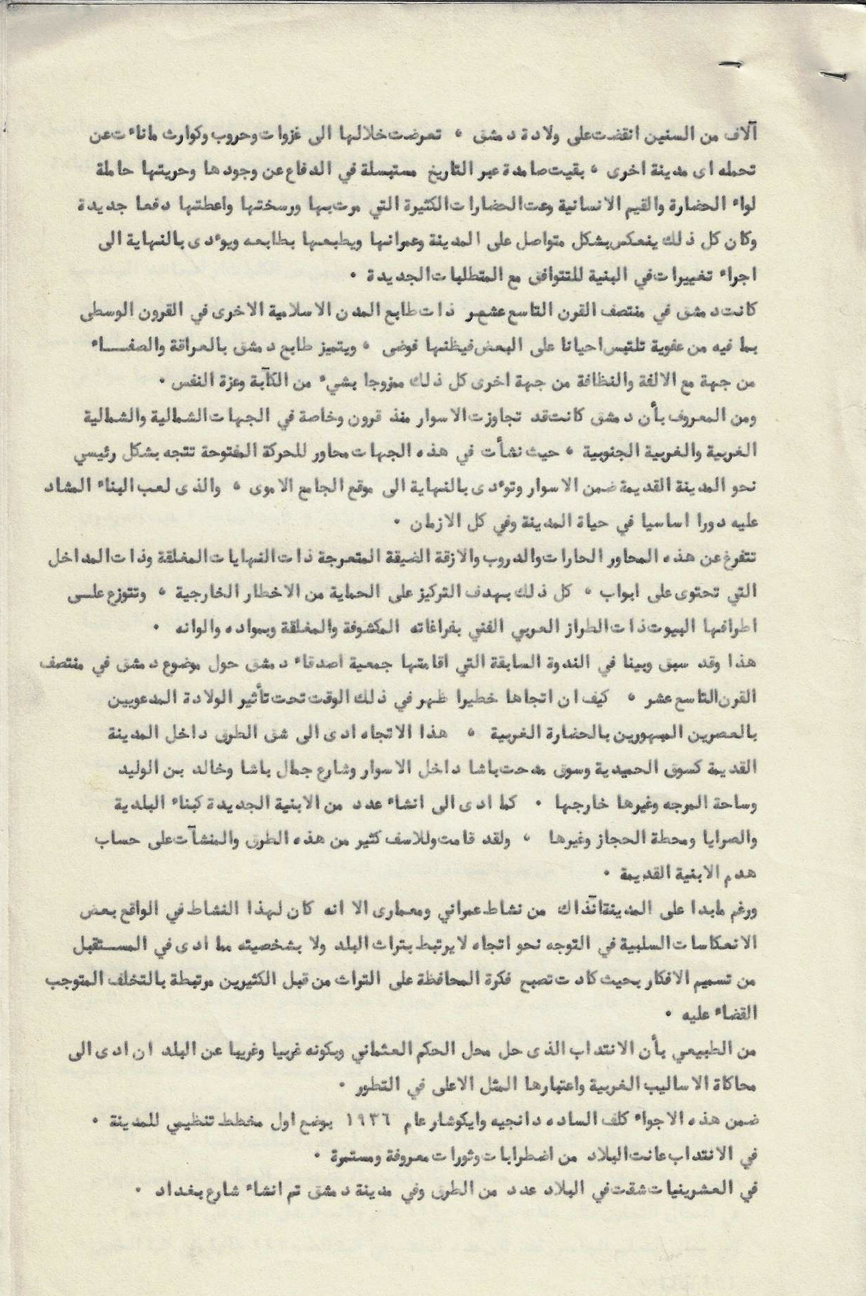 آلاف من السنين انقضت على ولادة دمشق ٠ تعرضت خلالها الى غزوات وحروب وكوارث ماناءت عن
تحمله اى مدينة اخرى ٠ بقيت صامدة عبر التاريخ مستبسلة في الدفاع عن وجودها وحريتها حاملة
لواء الحضارة والقيم الانسانية وعت الحضارات الكثيرة التي مرت بها ورسختها واعطتها دفعا جديدة
وكان كل ذلك ينعكس بشكل متواصل على المدينة وعمرانها ويطبعها بطابعه ويؤدى بالنهاية الى
اجراء تغييرات في البنية للتتوافق مع المتطلبات الجديدة ٠
كانت دمشق في منتصف القرن التاسع عشر ذات طابع المدن الاسلامية الاخرى في القرون الوسطى
بما فيه من عفوية تلتبس احيانا على البعض فيظنها فوضى ٠ ويتميز طابع دمشق بالعراقة والصفـــاء
من جهة مع الالفة والنظافة من جهة اخرى كل ذلك ممزوجا بشيء من الكآبة وعزة النفس ٠
ومن المعروف بأن دمشق كانت قد تجاوزت الاسوار منذ قرون وخاصة في الجهات الشمالية والشمالية
الغربية والغربية الجنوبية ٠ حيث نشأت في هذه الجهات محاور للحركة المفتوحة تتجه بشكل رئيسي
نحو المدينة القديمة ضمن الاسوار وتؤدى بالنهاية الى موقع الجامع الاموى ٠ والذى لعب البناء المشاد
عليه دورا اساسيا في حياة المدينة وفي كل الازمان ٠
تتفرغ عن هذه المحاور الحارات والدروب والازقة الضيقة المتعرجة ذات النهايات المغلقة وذات المداخل
التي تحتوى على ابواب ٠ كل ذلك بهدف التركيز على الحماية من الاخطار الخارجية ٠ وتتوزع علـى
اطرافها البيوت ذات الطراز العربي الغني بفراغاته المكشوفة والمغلقة وبمواده والوانه ٠
هذا وقد سبق وبينا في الندوة السابقة التي اقامتها جمعية اصدقاء دمشق حول موضوع دمشق في منتصف
القرن التاسع عشر ٠ كيف ان اتجاها خطيرا ظهر في ذلك الوقت تحت تأثير الولادة المدعويين
بالعصرين المبهورين بالحضارة الغربية ٠ هذا الاتجاه ادى الى شق الطرق داخل المدينة
القديمة كسوق الحميدية وسوق مدحت باشا داخل الاسوار وشارع جمال باشا وخالد بن الوليد
وساحة المرجه وغيرها خارجها ٠ كما ادى الى انشاء عدد من الابنية الجديدة كبناء البلدية
والصرايا ومحطة الحجاز وغيرها ٠ ولقد قامت وللاسف كثير من هذه الطرق والمنشآت على حساب
هدم الابنية القديمة ٠
ورغم مابدا على المدينة آنذاك من نشاط عمراني ومعمارى الا انه كان لهذا النشاط في الواقع بعض
الانعكاسات السلبية في التوجه نحو اتجاه لا يرتبط بتراث البلد ولا بشخصيته مما ادى في المســتقبل
من تسميم الافكار بحيث كادت تصبح فكرة المحافظة على التراث من قبل الكثيرين مرتبطة بالتخلف المتوجب
القضاء عليه ٠
من الطبيعي بأن الانتداب الذى حل محل الحكم العثماني وبكونه غربيا وغريبا عن البلد ان ادى الى
محاكاة الاساليب الغربية واعتبارها المثل الاعلى في التطور ٠
ضمن هذه الاجواء كلف الساده دانجيه وايكوشار عام ١٩٣٦ بوضع اول مخطط تنظيمي للمدينة ٠
في الانتداب عانت البلاد من اضطرابات وثورات معروفة ومستمرة ٠
في العشرينيات شقت في البلاد عدد من الطرق وفي مدينة دمشق تم انشاء شارع بغداد ٠